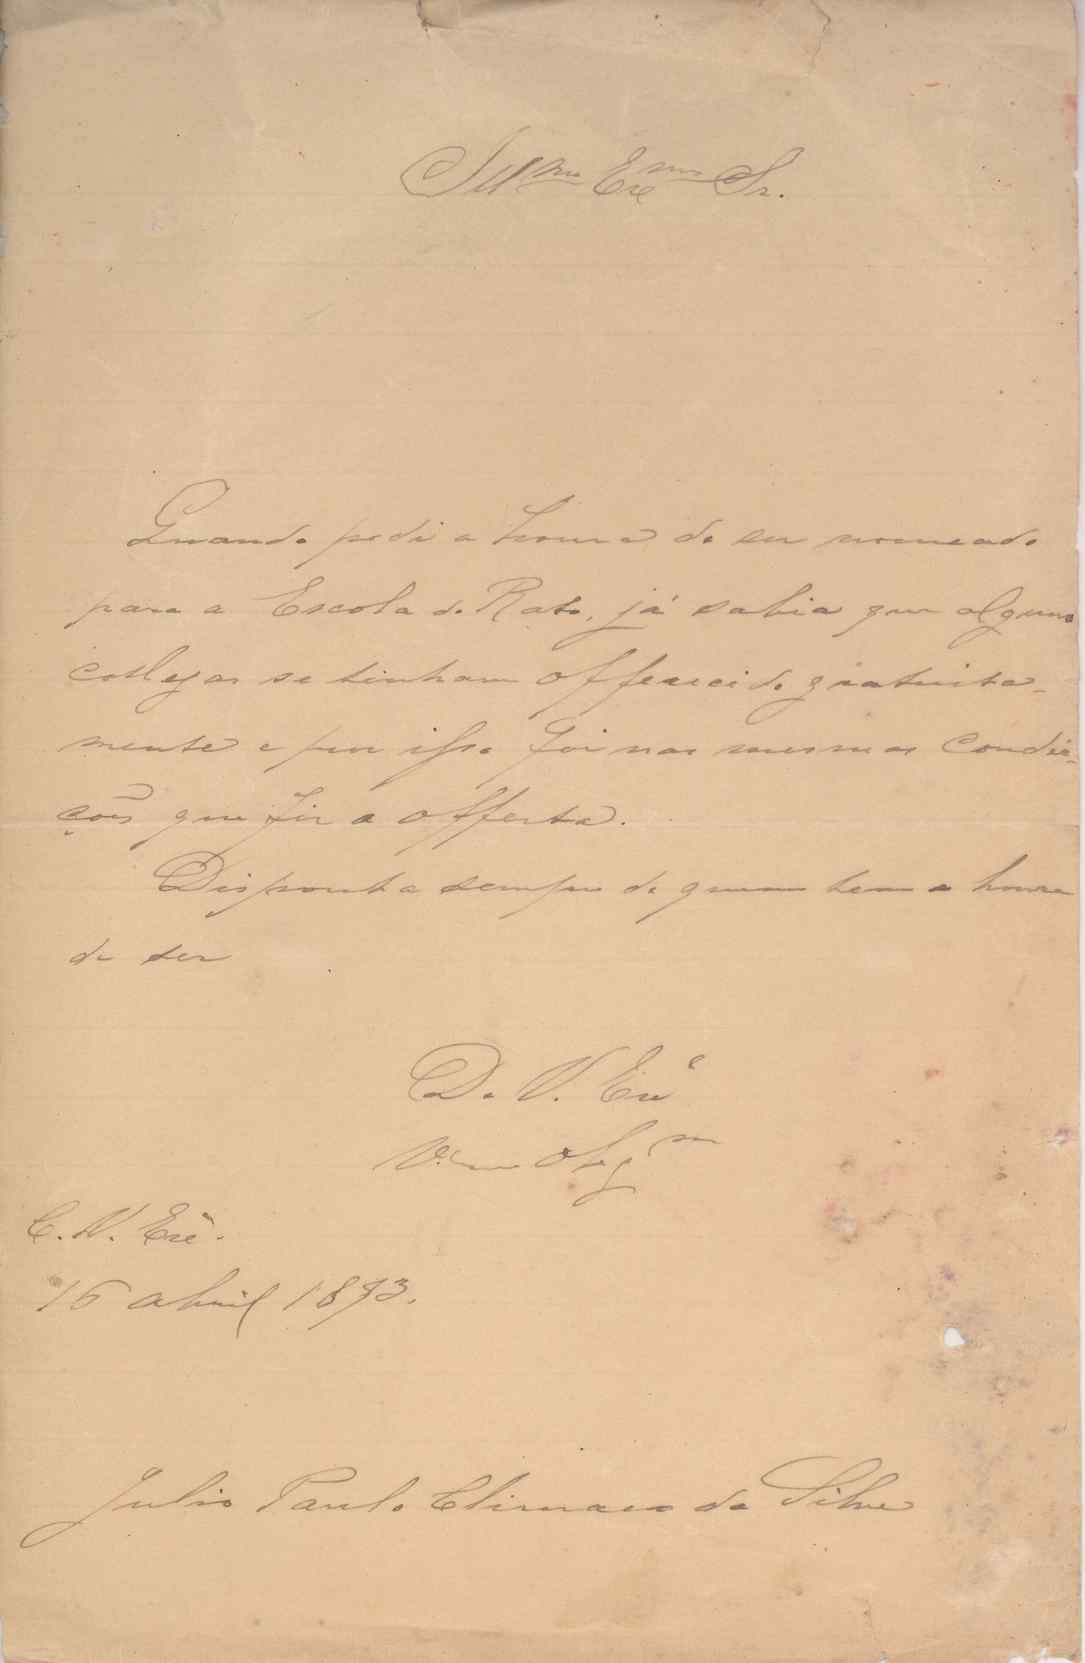 Illmo Exmo Sr.
Quando pedi a honra de ser nomeado
para a Escola do Rato, já sabia que alguns
collegas se tinham offerecido gratuita-
mente e por isso foi nas mesmas condi-
ções que fiz a offerta.
Disponha sempre de quem tem a honra
de ser
De V. Exª
Obgmo
C. V. Exª.
15 abril 1893.
Julio Paulo Climaco da Silva